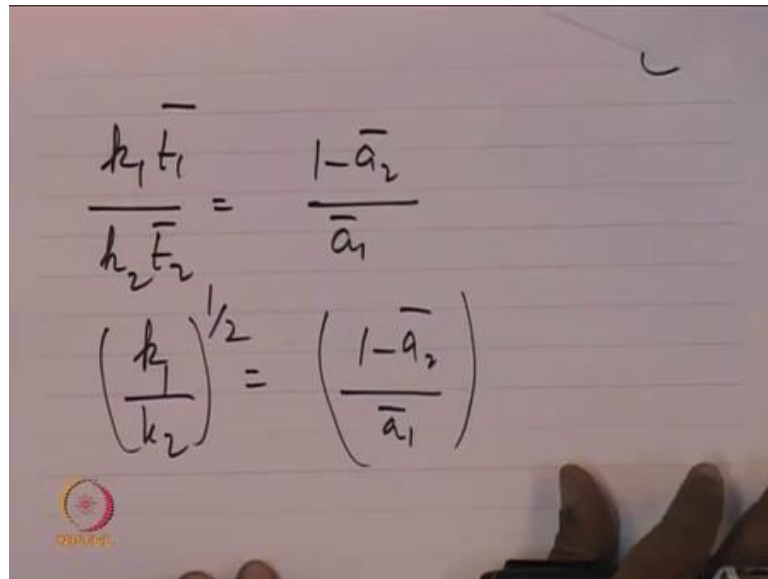 k₁ t̄₁ / k₂ t̄₂ = 1-ā₂ / ā₁
(k₁ / k₂)^1/2 = (1-ā₂ / ā₁)
NPTEL